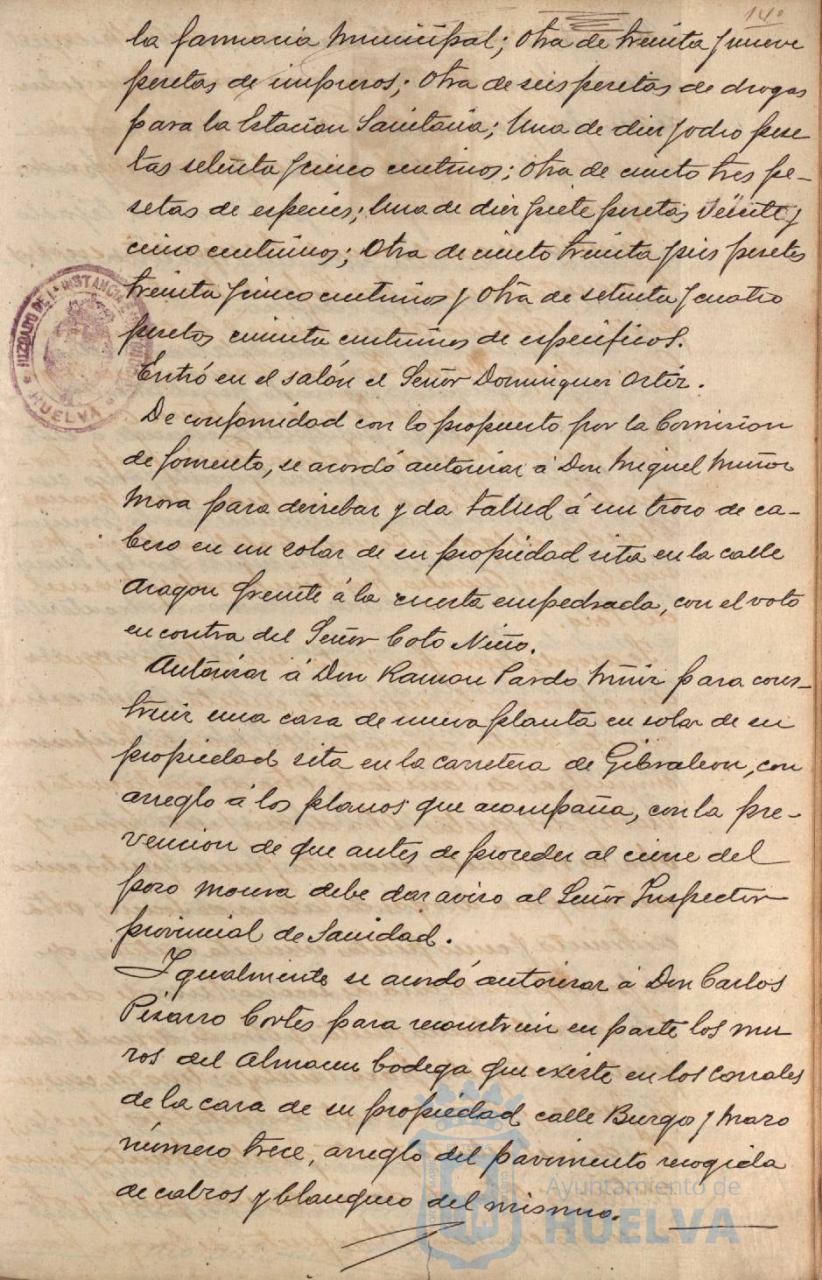 140
la farmacia Municipal; Otra de treinta y nueve
pesetas de impresos; Otra de seis pesetas de drogas
para la Estación Sanitaria; Una de diez y ocho pese
tas setenta y cinco centimos; Otra de ciento tres pe-
setas de especies; Una de diez y siete pesetas veinte y
cinco centimos; Otra de ciento treinta y seis pesetas
treinta y cinco centimos y Otra de setenta y cuatro
pesetas centimos de especificos.
Entró en el salón el Señor Dominguez Ortiz.
De conformidad con lo propuesto por la Comision
de fomento, se acordó autorizar á Don Miguel Muñoz
Mora para derribar y da talud á un trozo de ca-
bezo en un solar de su propiedad sita en la calle
Aragon frente á la cuesta empedrada, con el voto
en contra del Señor Coto Niño.
Autorizar á Don Ramon Pardo Muñiz para cons-
truir una casa de nueva planta en solar de su
propiedad sita en la carretera de Gibraleon, con
arreglo á los planos que acompaña, con la pre-
vencion de que antes de proceder al cierre del
pozo moura debe dar aviso al Señor Inspector
provincial de Sanidad.
Igualmente se acordó autorizar á Don Carlos
Pizarro Cortes para reconstruir en parte los mu
ros del Almacen bodega que existe en los corrales
de la casa de su propiedad calle Burgos y Mazo
número trece, arreglo del pavimento recogida
de calzos y blanqueo del mismo.
JUZGADO DE 1ª INSTANCIA
HUELVA
Ayuntamiento de
HUELVA